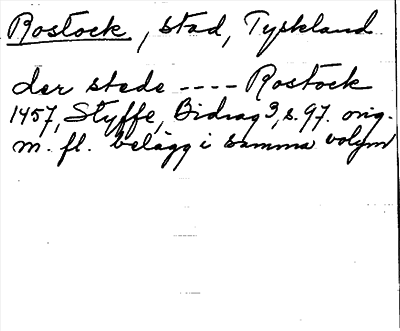 Rostock, stad, Tyskland
der stede ---- Rostock
1457, Styffe, Bidrag 3, s. 97. orig.
m. fl. belägg i samma volym